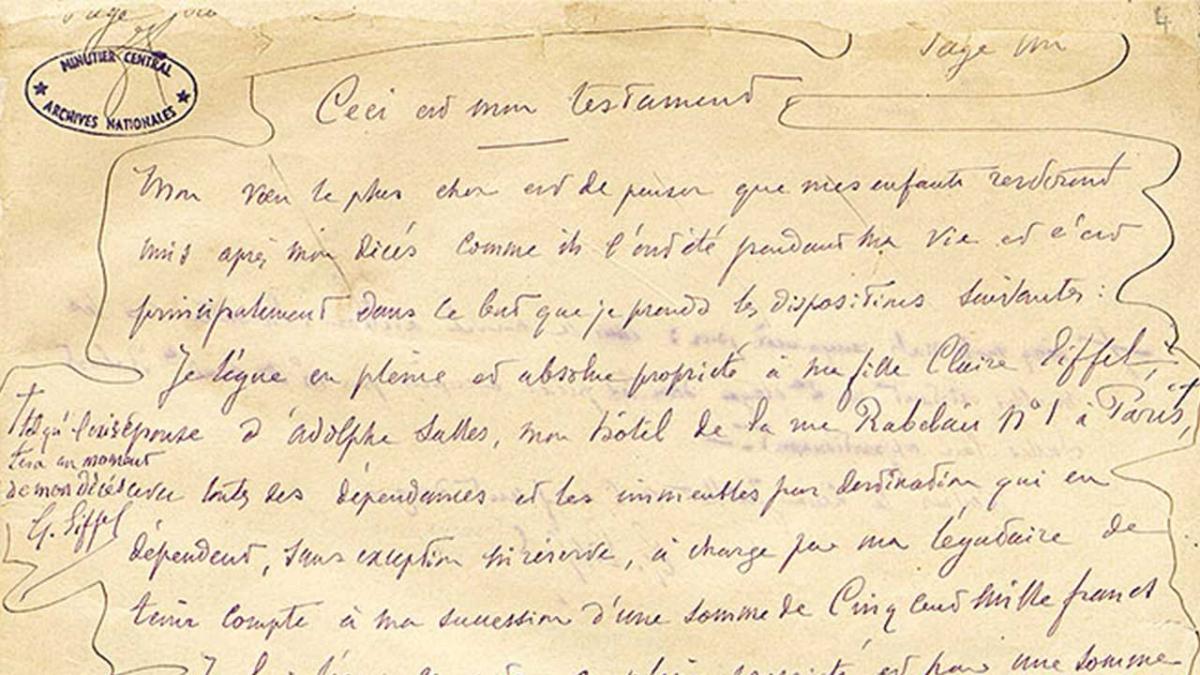 Page un
4
MINUTIER CENTRAL
ARCHIVES NATIONALES
Page un
Ceci est mon testament
Mon vœu le plus cher est de penser que mes enfants resteront
unis après mon décès comme ils l'ont été pendant ma vie et c'est
principalement dans ce but que je prends les dispositions suivantes :
Je lègue en pleine et absolue propriété à ma fille Claire Eiffel,
épouse d'adolphe Salles, mon hôtel de la rue Rabelais N° 1 à Paris,
tel qu'il exis
tera au moment
de mon décès
G. Eiffel
avec toutes ses dépendances et les immeubles par destination qui en
dépendent, sans exception ni réserve, à charge par ma légataire de
tenir compte à ma succession d'une somme de Cinq cent mille francs
une somme